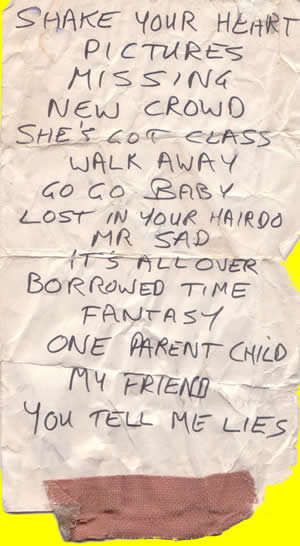 SHAKE YOUR HEART
PICTURES
MISSING
NEW CROWD
SHE'S GOT CLASS
WALK AWAY
GO GO BABY
LOST IN YOUR HAIRDO
MR SAD
IT'S ALL OVER
BORROWED TIME
FANTASY
ONE PARENT CHILD
MY FRIEND
YOU TELL ME LIES